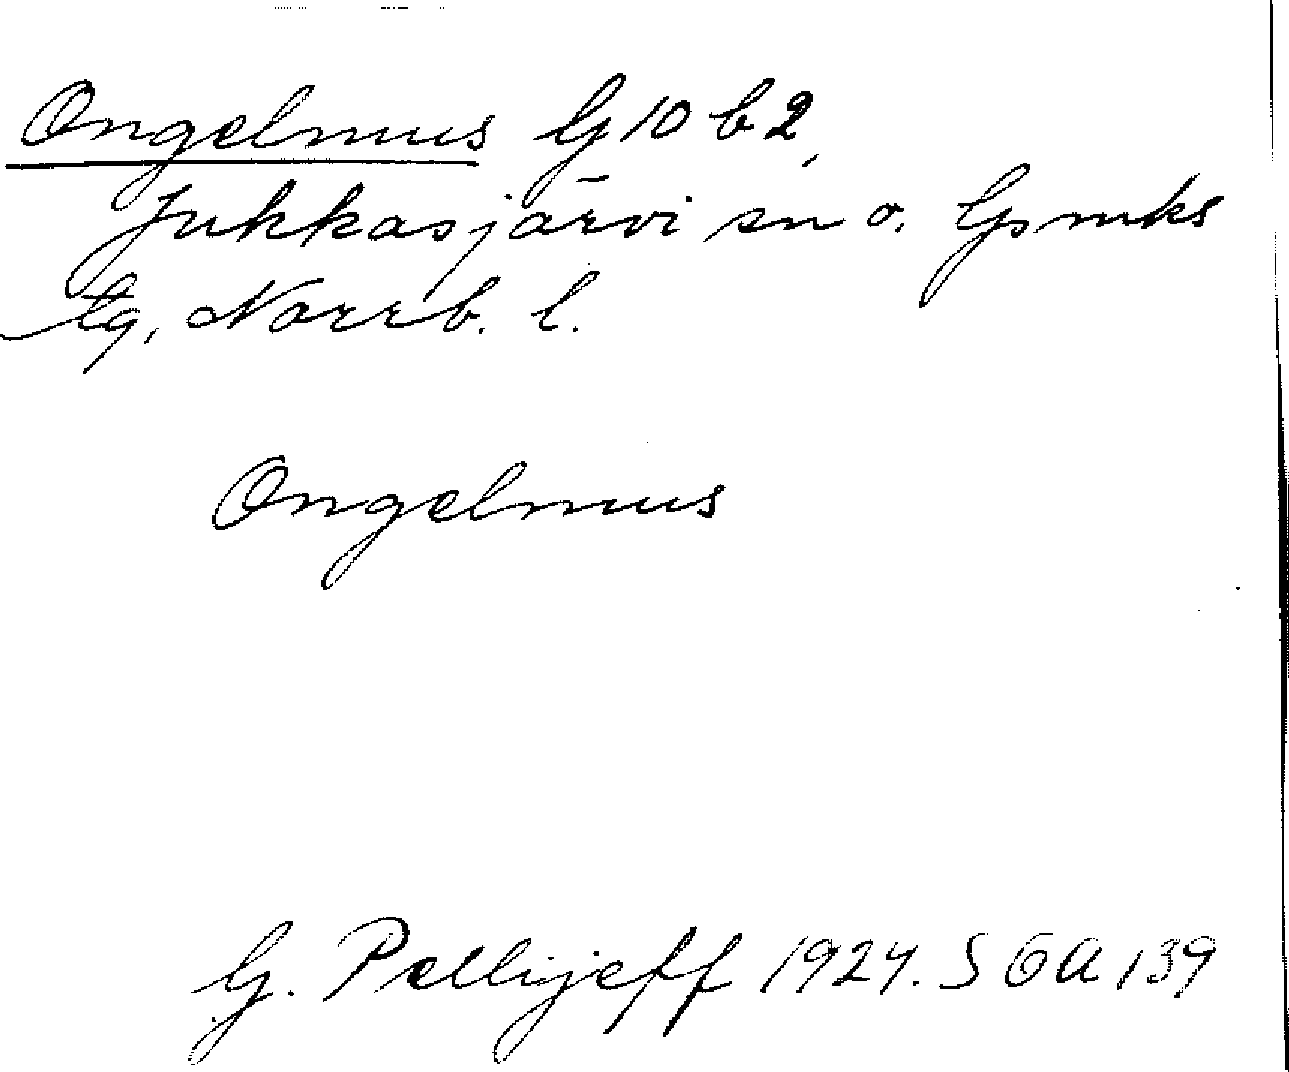 Ongelmus G 10 b 2,
Jukkasjärvi sn o. Gsmks
tg, Norrb. l.
Ongelmus
G. Pellijeff 1924. SOA 139